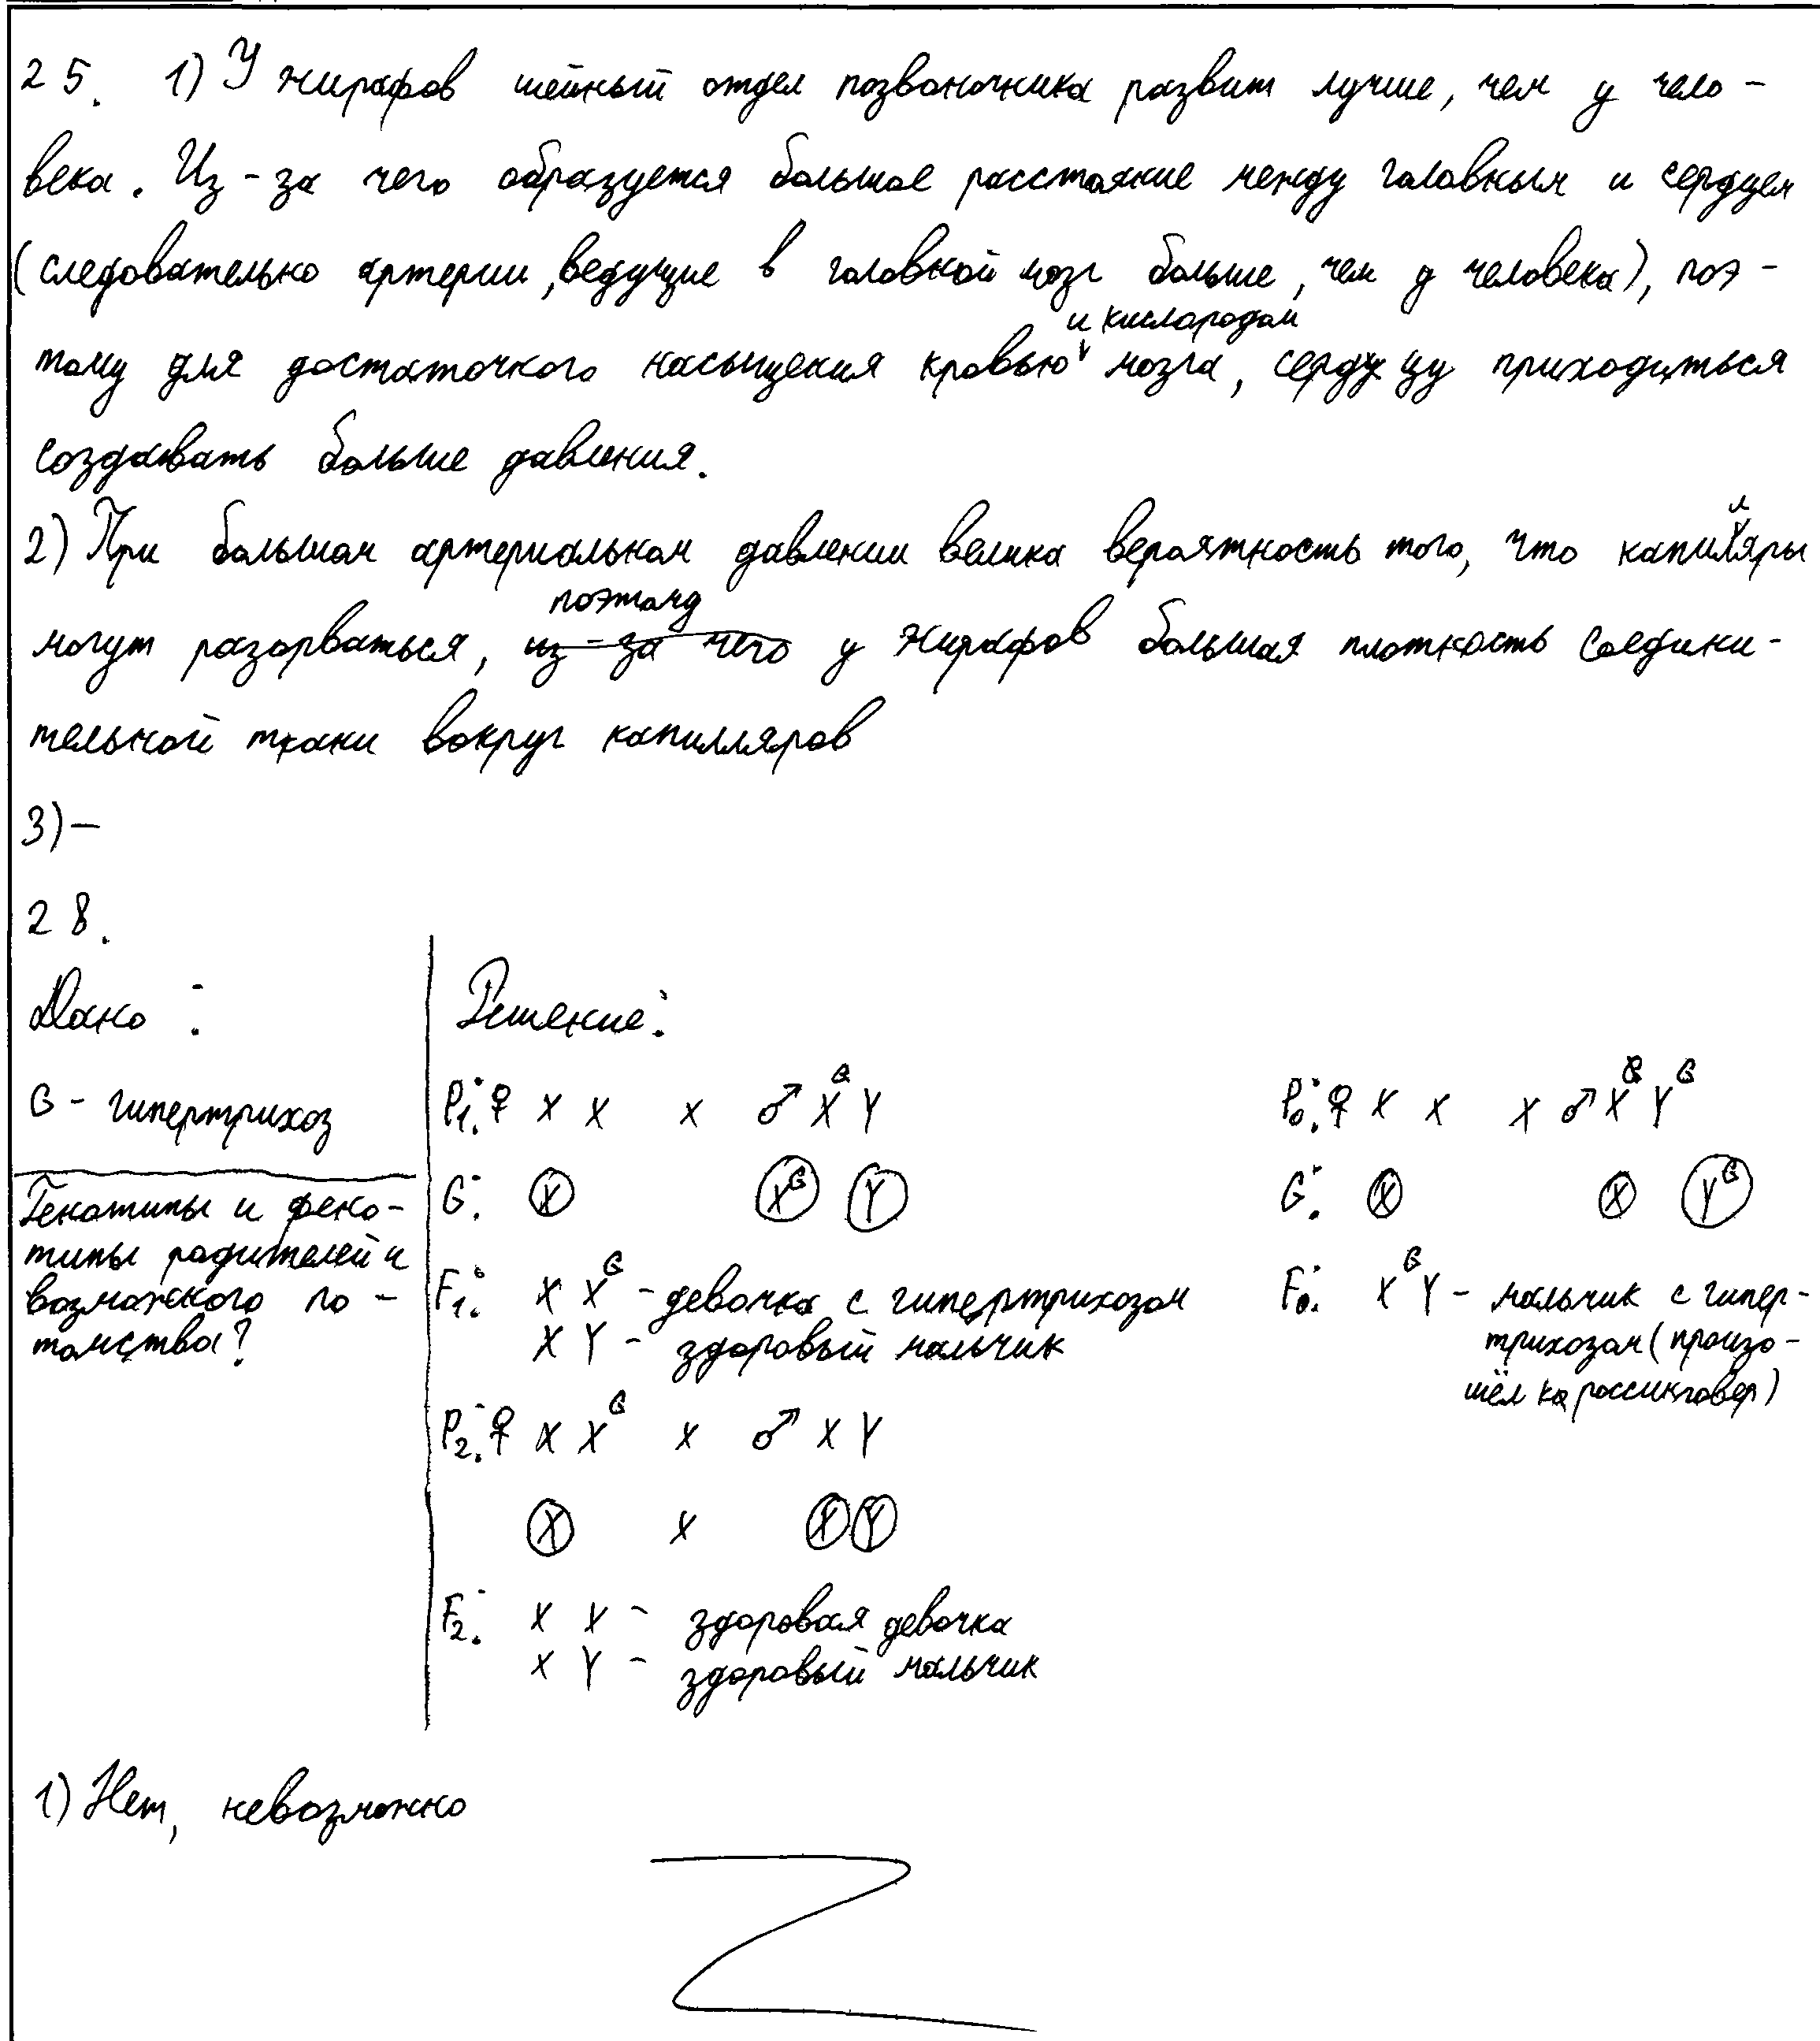 25. 1) У жирафов шейный отдел позвоночника развит лучше, чем у чело-
века. Из-за чего образуется большое расстояние между головным и сердцем
(следовательно артерии, ведущие в головной мозг больше, чем у человека), поэ-
тому для достаточного насыщения кровью и кислородом мозга, сердцу приходиться
создавать больше давления.
2) При большом артериальном давлении велика вероятность того, что капилляры
могут разорваться, ~~из-за чего~~ поэтому у жирафов большая плотность соедини-
тельной ткани вокруг капилляров
3) –
28.
Дано:
G - гипертрихоз
Генотипы и фено-
типы родителей и
возможного по-
томства?
Решение:
P₁: ♀ X X x ♂ Xᴳ Y
G: (X) (Xᴳ) (Y)
F₁: X Xᴳ - девочка с гипертрихозом
X Y - здоровый мальчик
P₂: ♀ X Xᴳ x ♂ X Y
(X) x (X) (Y)
F₂: X X - здоровая девочка
X Y - здоровый мальчик
P₀: ♀ X X x ♂ Xᴳ Yᴳ
G: (X) (X) (Yᴳ)
F₀: Xᴳ Y - мальчик с гипер-
трихозом (произо-
шёл кроссинговер)
1) Нет, невозможно